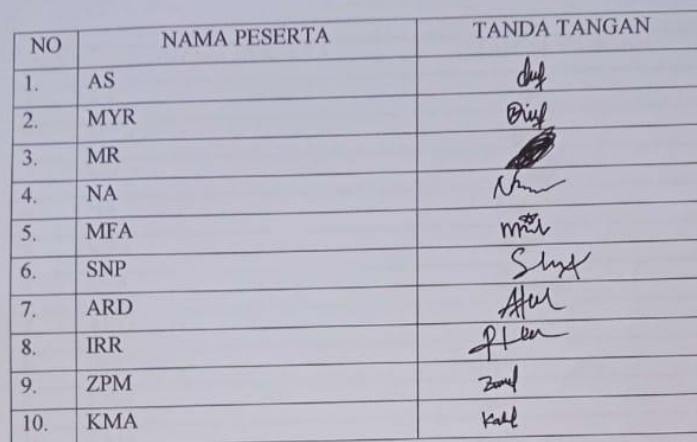 NO NAMA PESERTA TANDA TANGAN
1. AS
2. MYR
3. MR
4. NA
5. MFA
6. SNP
7. ARD
8. IRR
9. ZPM
10. KMA